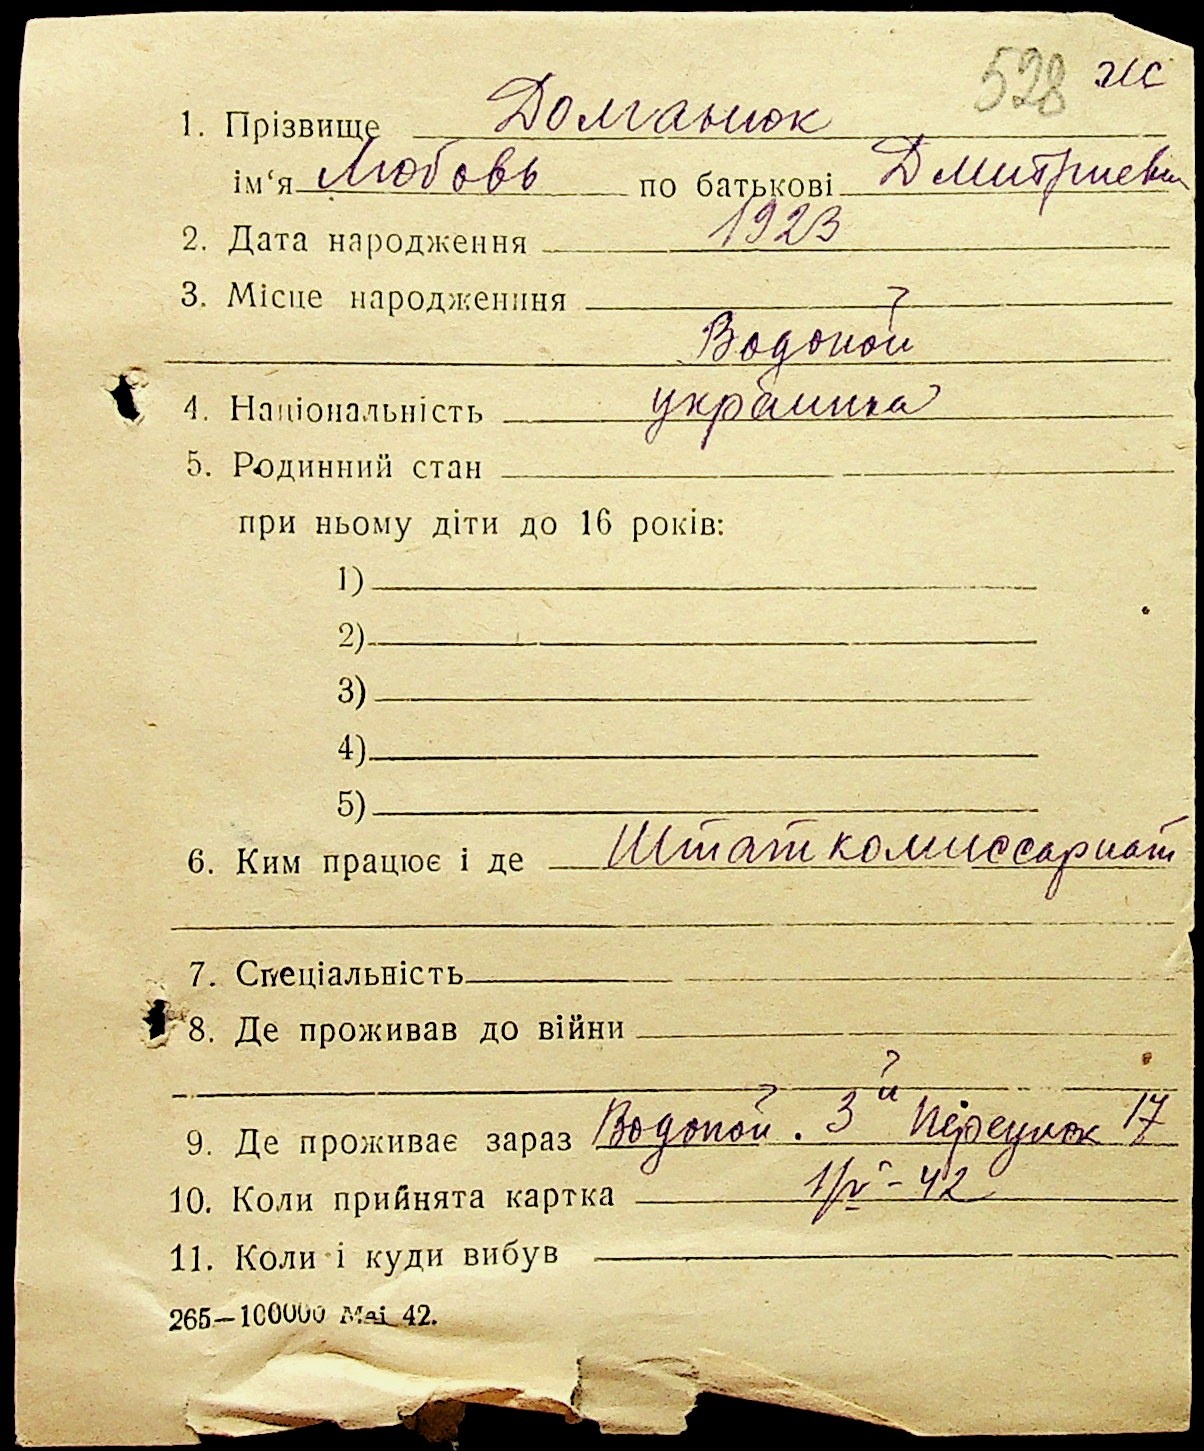 528 жс
1. Прізвище Долганюк
ім‘я Любовь по батькові Дмитриевн
2. Дата народження 1923
3. Місце народженння
Водопой
4. Національність украинка
5. Родинний стан
при ньому діти до 16 років:
1)
2)
3)
4)
5)
6. Ким працює і де Штаткомиссариат
7. Спеціальність
8. Де проживав до війни
9. Де проживає зараз Водопой. 3й переулок 17
10. Коли прийнята картка 1/IV-42
11. Коли і куди вибув
265—100000 Mai 42.